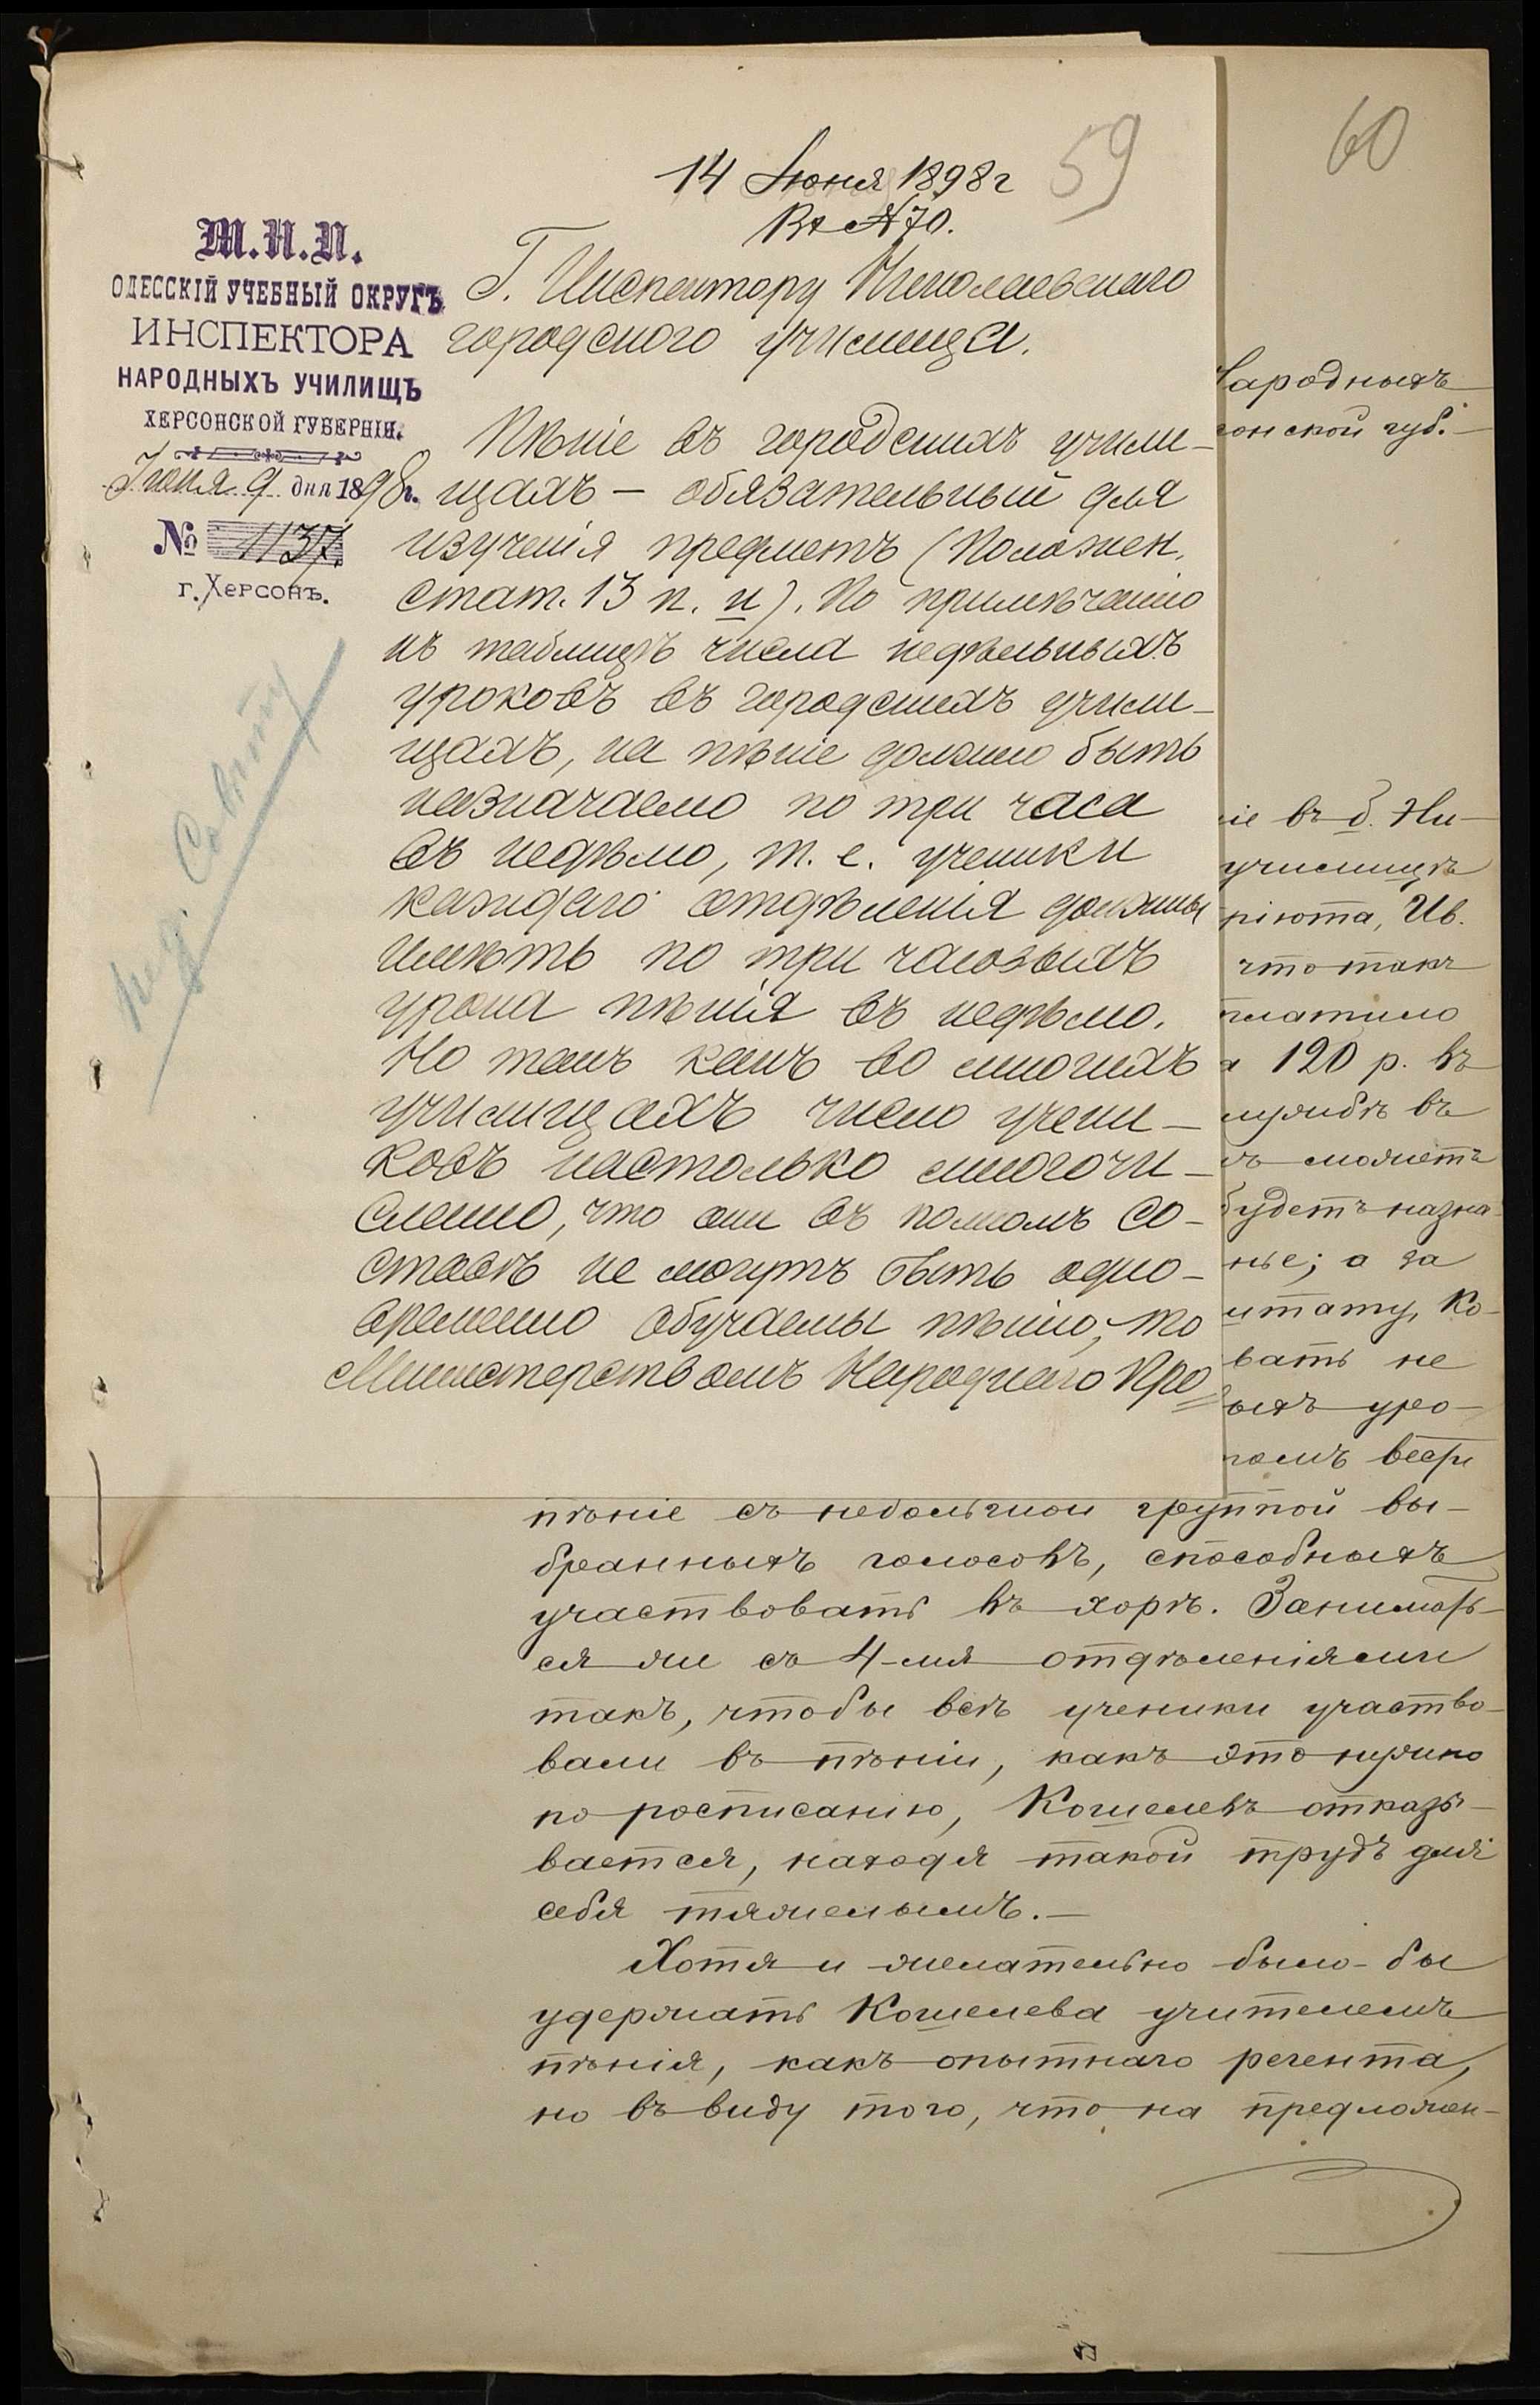 59
60
14 Июня 1898 г
Вх №70.
М.Н.П.
ОДЕССКІЙ УЧЕБНЫЙ ОКРУГЪ
ИНСПЕКТОРА
НАРОДНЫХЪ УЧИЛИЩЪ
ХЕРСОНСКОЙ ГУБЕРНІИ.
Іюня 9 дня 1898 г.
№ 1137.
г. Херсонъ.
пед. Совѣту
Г. Инспектору Николаевскаго
городского училища.
Пѣніе въ городскихъ учили-
щахъ – обязательный для
изученія предметъ (Положен.
стат. 13 п. и). По примѣчанію
къ таблицѣ числа недѣльныхъ
уроковъ въ городскихъ учили-
щахъ, на пѣніе должно быть
назначаемо по три часа
въ недѣлю, т. е. ученики
каждаго отдѣленія должны
имѣть по три часовыхъ
урока пѣнія въ недѣлю.
Но такъ какъ во многихъ
училищахъ число учени-
ковъ настолько многочи-
сленно, что они въ полномъ со-
ставѣ не могутъ быть одно-
временно обучаемы пѣнію, то
Министерствомъ Народнаго Про
Народныхъ
сонской губ.
іе въ б. Ни-
училищѣ
ріюта, Ив.
что такъ
платило
120 р. въ
службѣ въ
можетъ
будетъ назна
нье; а за
штату, Ко-
вать не
ыхъ уро-
комъ вести
пѣніе съ небольшой группой вы-
бранныхъ голосовъ, способныхъ
участвовать въ хорѣ. Занимать-
ся же съ 4-мя отдѣленіями
такъ, чтобы всѣ ученики участво-
вали въ пѣніи, какъ это нужно
по росписанію, Кошелевъ отказы-
вается, находя такой трудъ для
себя тяжелымъ.—
Хотя и желательно было-бы
удержать Кошелева учителемъ
пѣнія, какъ опытнаго регента,
но въ виду того, что на предложен-